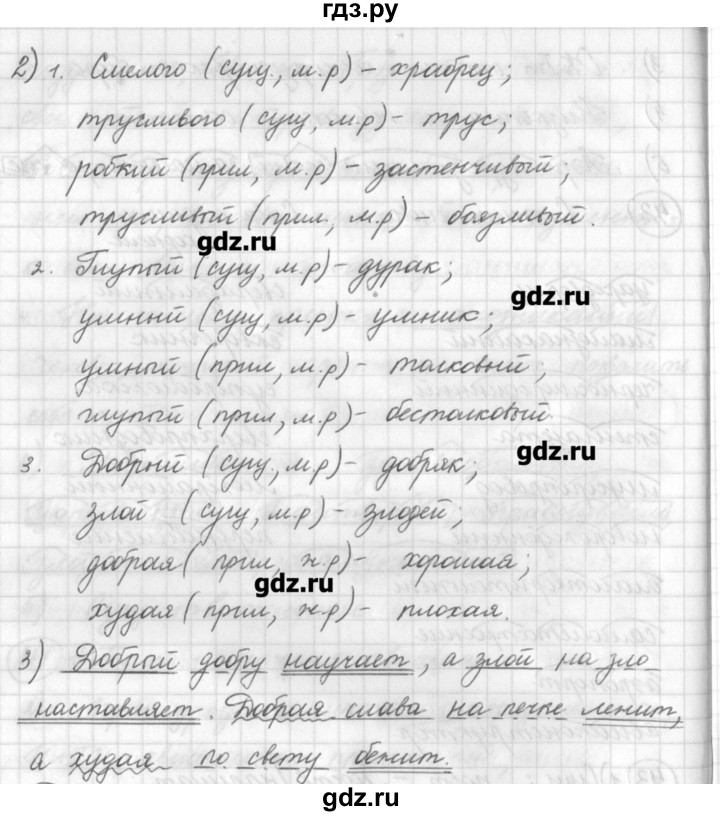 гдз.ру
2) 1. Смелого (сущ., м.р) – храбрец;
трусливого (сущ, м.р) – трус;
робкий (прил, м.р) – застенчивый;
трусливый (прил, м.р) – боязливый.
gdz.ru
2. Глупый (сущ, м.р) – дурак;
gdz.ru
умный (сущ, м.р) – умник;
умный (прил, м.р) – толковый;
глупый (прил, м.р) – бестолковый.
gdz.ru
3. Добрый (сущ, м.р) – добряк;
злой (сущ, м.р) – злодей;
добрая (прил, ж.р) – хорошая;
gdz.ru
худая (прил, ж.р) – плохая.
3) Добрый добру научает, а злой на зло
наставляет. Добрая слава на печке лежит,
а худая по свету бежит.
gdz.ru